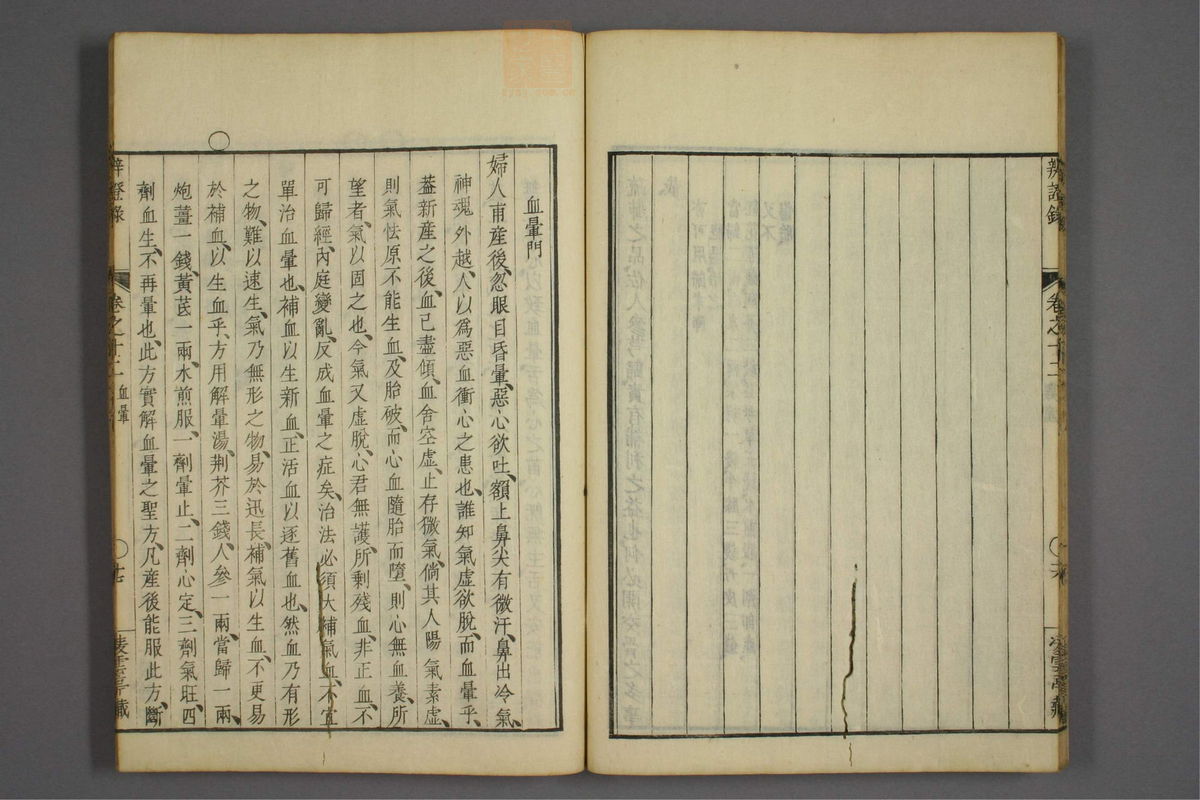 辨證錄
卷之十二
血暈門
婦人甫產後、忽眼目昏暈、惡心欲吐、額上鼻尖有微汗、鼻出冷氣、
神魂外越、人以爲惡血衝心之患也、誰知氣虛欲脫、而血暈乎、
葢新產之後、血已盡傾、血舍空虛、止存微氣、倘其人陽氣素虛、
則氣怯原不能生血、及胎破、而心血隨胎而墮、則心無血養、所
望者、氣以固之也、今氣又虛脫、心君無護、所剩殘血、非正血、不
可歸經、內庭變亂、反成血暈之症矣、治法必須大補氣血、不宜
單治血暈也、補血以生新血、正活血以逐舊血也、然血乃有形
之物、難以速生、氣乃無形之物、易於迅長、補氣以生血、不更易
於補血、以生血乎、方用解暈湯、荆芥三錢、人參一兩、當歸一兩、
炮薑一錢、黃芪一兩、水煎服、一劑暈止、二劑心定、三劑氣旺、四
劑血生、不再暈也、此方實解血暈之聖方、凡產後能服此方、斷
辨證錄
卷之十二
血暈